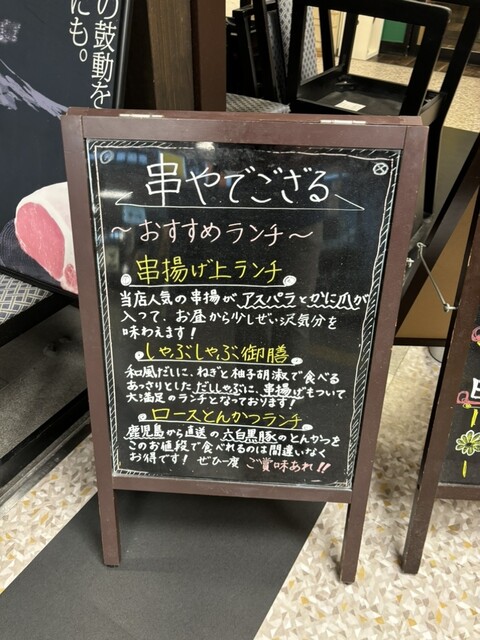 の鼓動を
にも。
串やでござる
～おすすめランチ～
串揚げ上ランチ
当店人気の串揚が、アスパラとかに爪が
入って、お昼から少しぜい沢気分を
味わえます！
しゃぶしゃぶ御膳
和風だしに、ねぎと柚子胡椒で食べる
あっさりとした、だししゃぶに、串揚げもついて
大満足のランチとなっております！
ロースとんかつランチ
鹿児島から直送の六白黒豚のとんかつを
このお値段で食べれるのは間違いなく
お得です！ ぜひ一度 ご賞味あれ!!